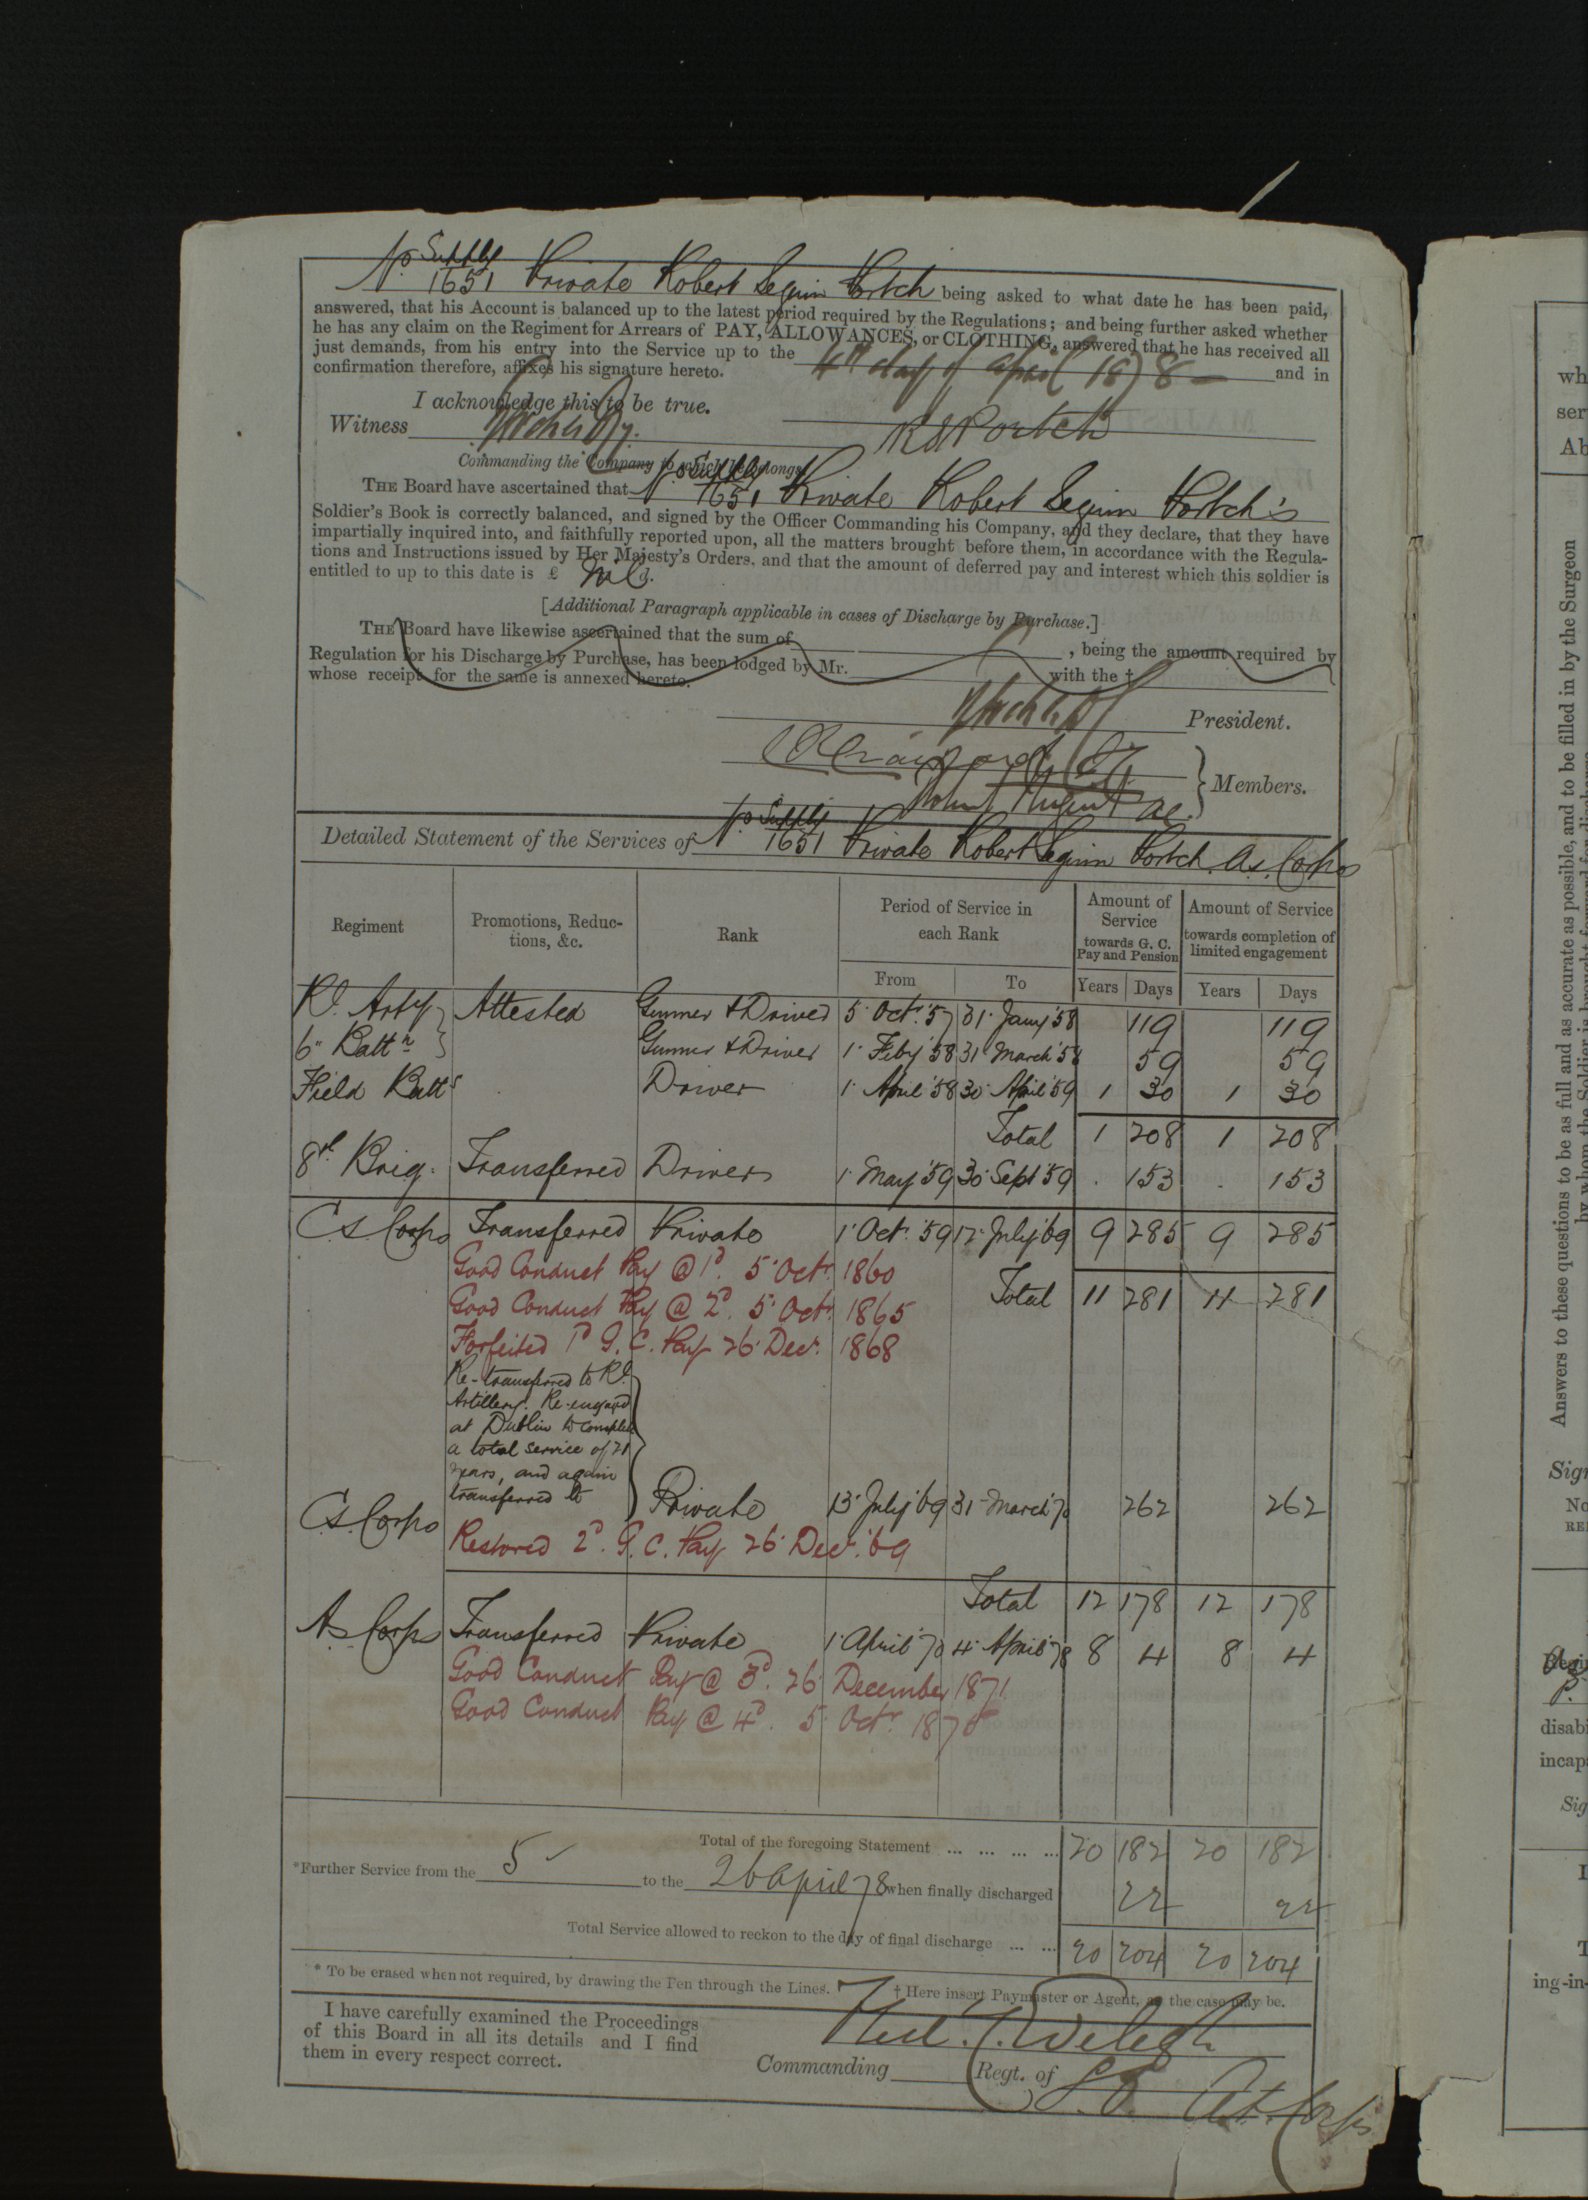 No. Supply
1651 Private Robert Seguin Portch being asked to what date he has been paid,
answered, that his Account is balanced up to the latest period required by the Regulations; and being further asked whether
he has any claim on the Regiment for Arrears of PAY, ALLOWANCES, or CLOTHING, answered that he has received all
just demands, from his entry into the Service up to the 4th day of April 1878 — and in
confirmation therefore, affixes his signature hereto.
I acknowledge this to be true.
Witness R S Portch
Commanding the Company to which he belongs
THE Board have ascertained that No. Supply 1651 Private Robert Seguin Portch's
Soldier's Book is correctly balanced, and signed by the Officer Commanding his Company, and they declare, that they have
impartially inquired into, and faithfully reported upon, all the matters brought before them, in accordance with the Regula-
tions and Instructions issued by Her Majesty's Orders, and that the amount of deferred pay and interest which this soldier is
entitled to up to this date is £ Nil d.
[Additional Paragraph applicable in cases of Discharge by Purchase.]
THE Board have likewise ascertained that the sum of , being the amount required by
Regulation for his Discharge by Purchase, has been lodged by Mr. with the †
whose receipt for the same is annexed hereto.
President.
Members.
Detailed Statement of the Services of No. Supply 1651 Private Robert Seguin Portch. A.S. Corps
Regiment Promotions, Reduc-tions, &c. Rank Period of Service in each Rank Amount of Service towards G. C. Pay and Pension Amount of Service towards completion of limited engagement
From To Years Days Years Days
Rl. Arty Attested Gunner & Driver 5 Oct. '57 31 Jany '58 119 119
6" Battn Gunner & Driver 1 Feby '58 31 March '58 59 59
Field Batts Driver 1 April '58 30 April '59 1 30 1 30
Total 1 208 1 208
8th Brig. Transferred Driver 1 May '59 30 Sept '59 . 153 . 153
C S Corps Transferred Private 1 Oct. '59 12 July '69 9 285 9 285
Good Conduct Pay @ 1d. 5 Octr. 1860
Total 11 281 11 281
Good Conduct Pay @ 2d. 5 Octr. 1865
Forfeited 1d G. C. Pay 26 Decr. 1868
Re-transferred to Rl.
Artillery. Re-engaged
at Dublin to complete
a total service of 21
years, and again
transferred to
C S Corps Private 13 July '69 31 March '70 262 262
Restored 2d. G. C. Pay 26 Decr. '69
Total 12 178 12 178
A.S. Corps Transferred Private 1 April '70 4 April '78 8 4 8 4
Good Conduct Pay @ 3d. 26 December 1871
Good Conduct Pay @ 4d. 5 Octr. 1875
Total of the foregoing Statement ... ... ... ... 20 182 20 182
*Further Service from the 5 to the 26 April 78 when finally discharged 22 22
Total Service allowed to reckon to the day of final discharge ... ... 20 204 20 204
* To be erased when not required, by drawing the Pen through the Lines. † Here insert Paymaster or Agent, as the case may be.
I have carefully examined the Proceedings
of this Board in all its details and I find
them in every respect correct.
Commanding Regt. of A.S. Corps
Answers to these questions to be as full and as accurate as possible, and to be filled in by the Surgeon